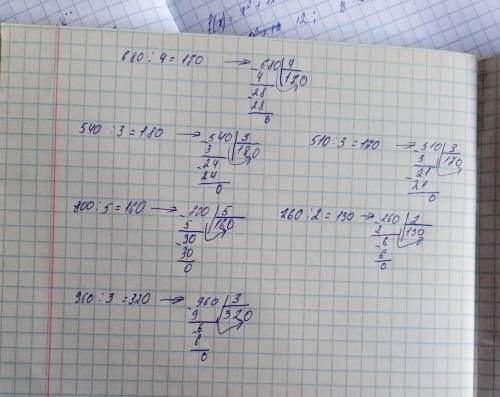 f(x) = x²
12;
680 : 4 = 170 → - 680 | 4
4 | 170
28
- 28
0
540 : 3 = 180 → - 540 | 3
3 | 180
- 24
24
0
510 : 3 = 170 → - 510 | 3
3 | 170
- 21
21
0
800 : 5 = 160 → - 800 | 5
5 | 160
- 30
30
0
260 : 2 = 130 → - 260 | 2
2 | 130
- 6
6
0
960 : 3 = 320 → - 960 | 3
9 | 320
- 6
6
0